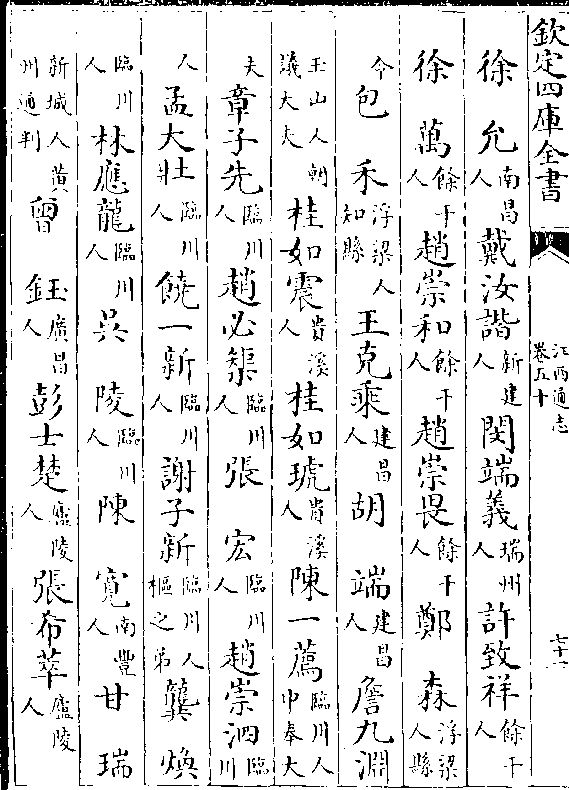 欽定四庫全書
江西通志
卷五十
七十一
徐允南昌人戴汝諧新建人閔端義瑞州人許致祥餘干人
徐萬餘干人趙崇和餘干人趙崇畏餘干人鄭森浮梁人縣
令包禾浮梁人知縣王克乘建昌人胡端建昌人詹九淵
玉山人朝議大夫桂如震貴溪人桂如琥貴溪人陳一薦臨川人中奉大
夫章子先臨川人趙必榘臨川人張宏臨川人趙崇泗臨川
人孟大壯臨川人饒一新臨川人謝子新臨川人樞之弟龔煥
臨川人林應龍臨川人吳陵臨川人陳寛南豐人甘瑞
新城人黃州通判曾鈺廣昌人彭士楚廬陵人張布萃廬陵人